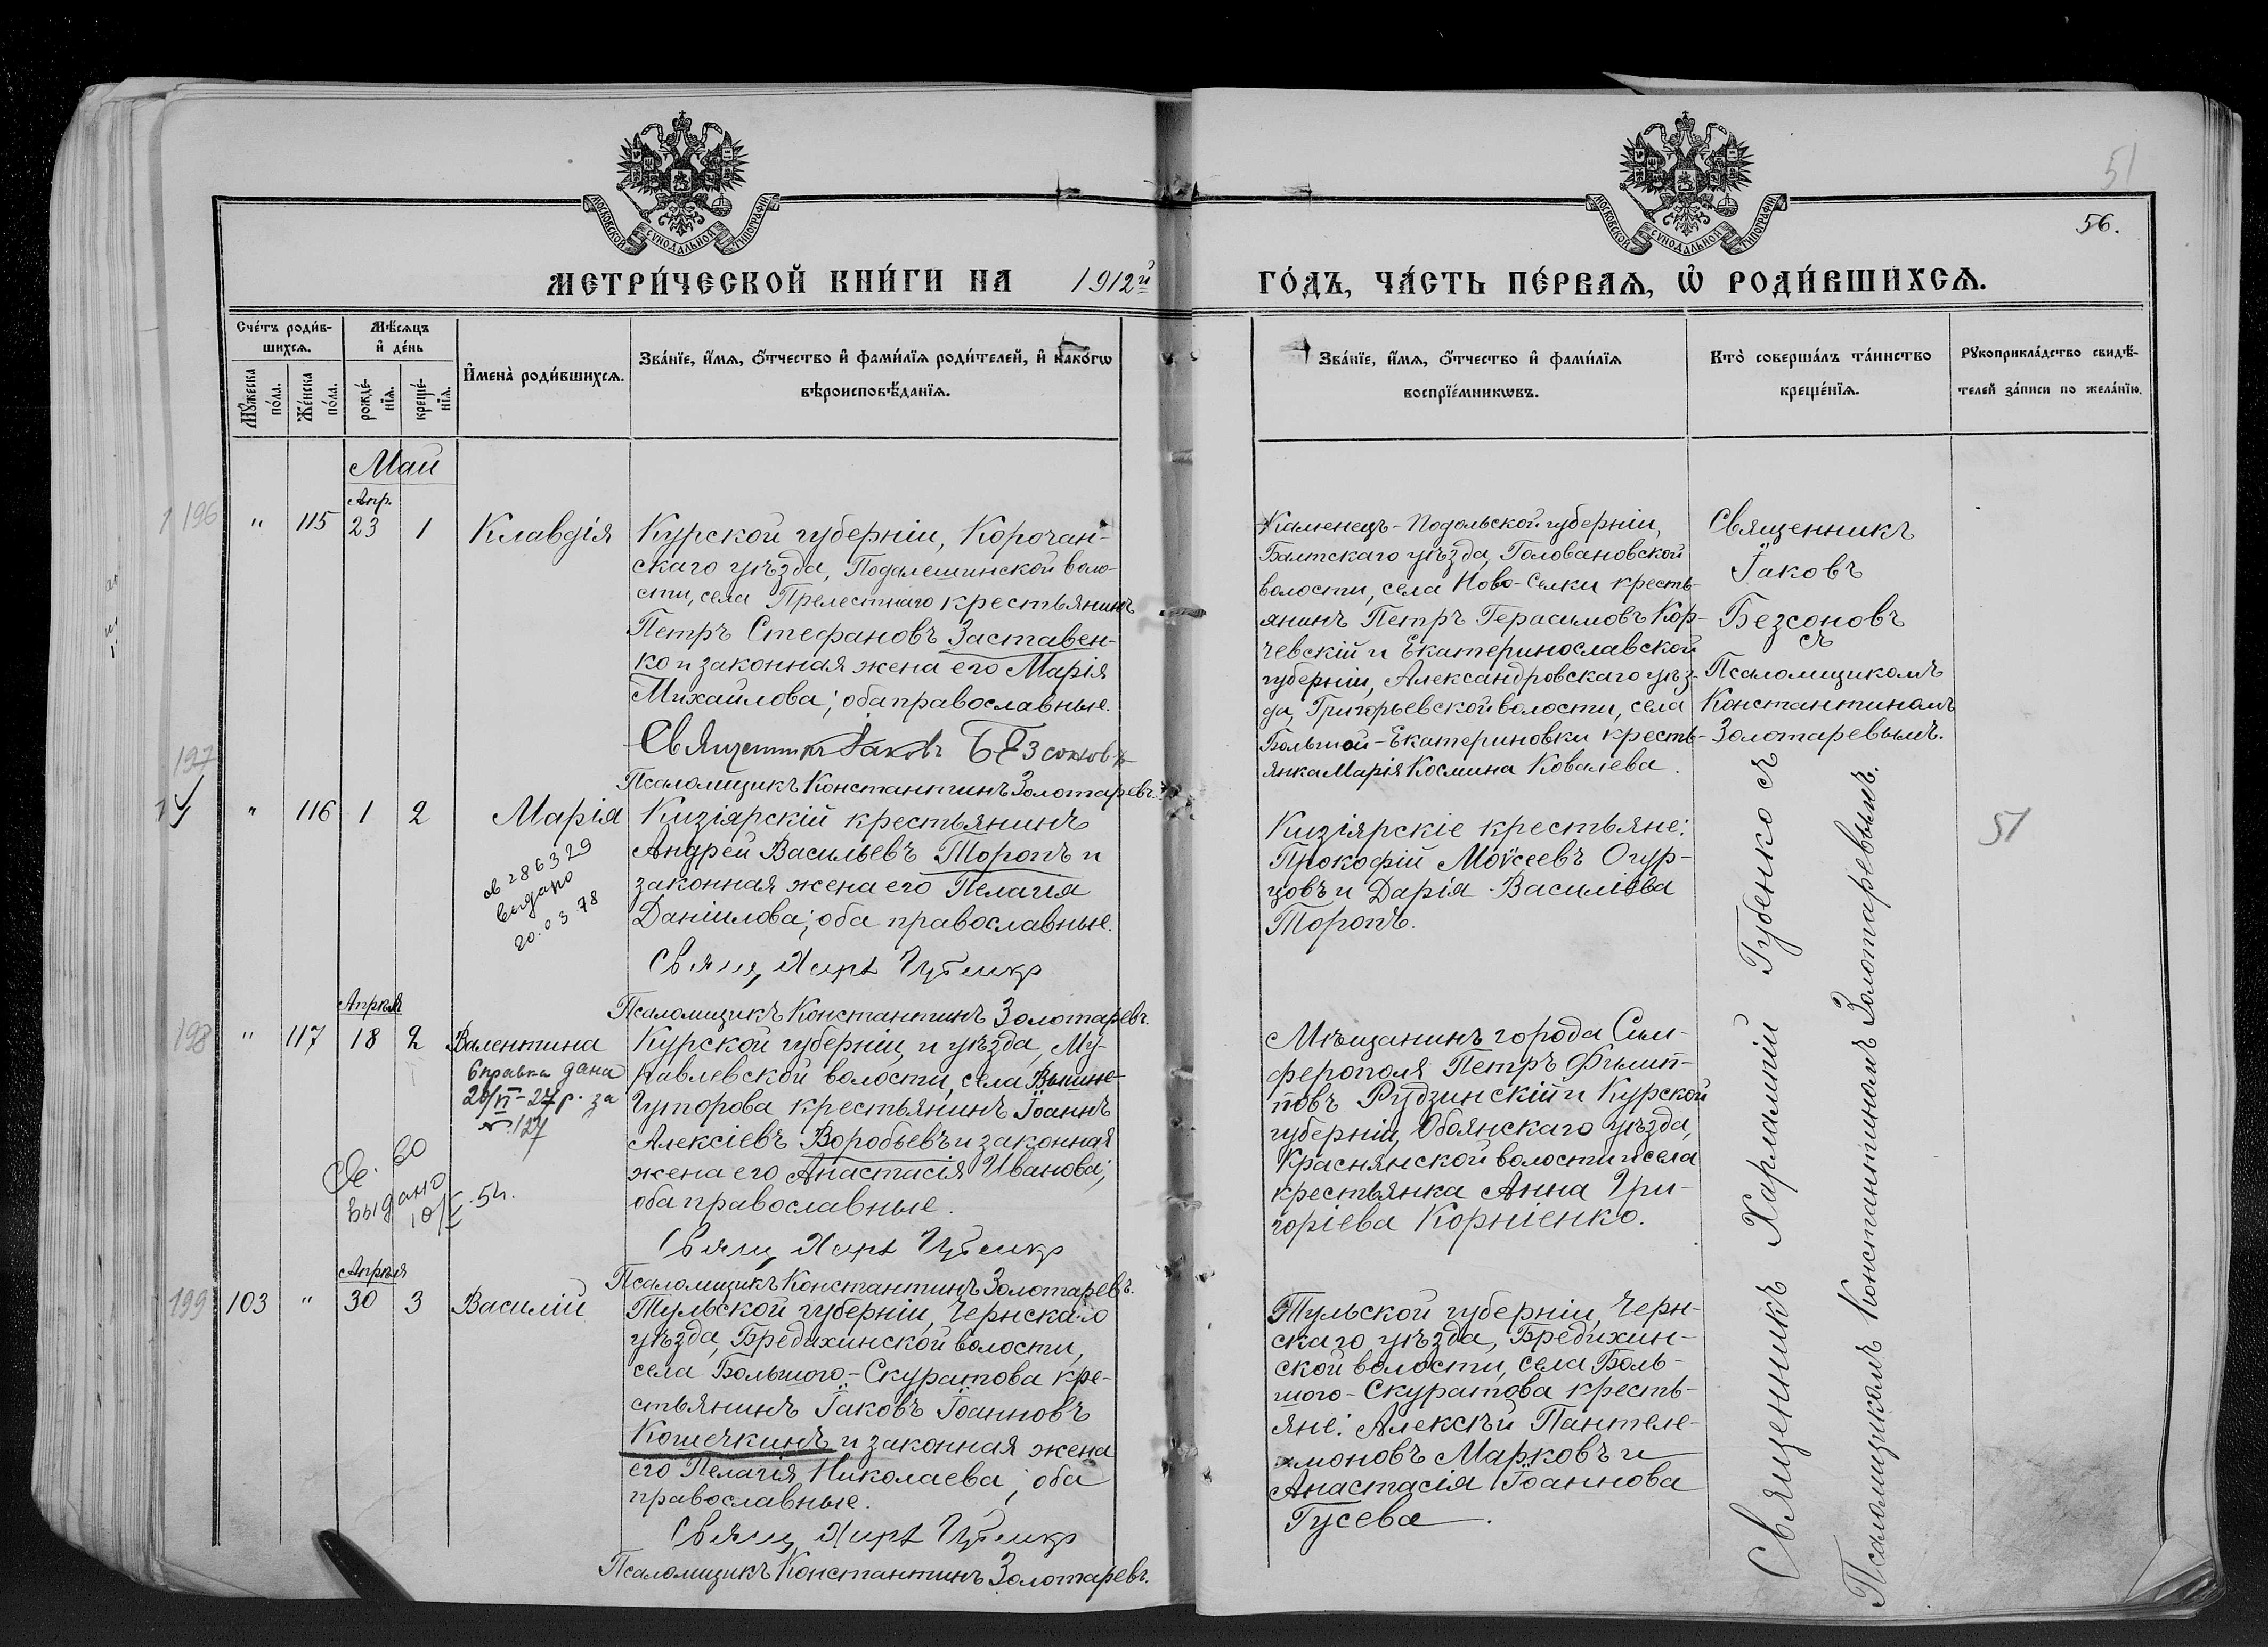 51
56.
МОСКОВСКОЙ СѴНОДАЛЬНОЙ ТИПОГРАФІИ
МОСКОВСКОЙ СѴНОДАЛЬНОЙ ТИПОГРАФІИ
МЕТРИ́ЧЕСКОЙ КНИ́ГИ НА 1912й
ГО́ДЪ, ЧА́СТЬ ПЕ́РВАѦ, Ѡ҆ РОДИ́ВШИХСѦ.
Сче́тъ роди́в-
шихсѧ.
Мꙋ́жеска
по́ла.
Же́нска
по́ла.
Мѣ́сѧцъ
и҆ де́нь
рожде́-
нїѧ.
креще́-
нїѧ.
И҆мена̀ роди́вшихсѧ.
Зва́нїе, и҆́мѧ, ѻ҆́тчество и҆ фами́лїѧ роди́телей, и҆ како́гѡ
вѣроисповѣ́данїѧ.
Зва́нїе, и҆́мѧ, ѻ҆́тчество и҆ фами́лїѧ
воспрїе́мникѡвъ.
Кто̀ соверша́лъ та́инство
креще́нїѧ.
Рꙋкоприкла́дство свидѣ́-
телей за́писи по жела́нїю.
Май
196
"
115
Апр.
23
1
Клавдія
Курской губерніи, Корочан-
скаго уѣзда, Подолешинской воло-
сти, села Прелестнаго крестьянинъ
Петръ Стефановъ Заставен-
ко и законная жена его Марія
Михаилова; оба православные.
Священникъ Іаковъ Безсоновъ
Псаломщикъ Константинъ Золотаревъ.
Каменецъ-Подольской губерніи,
Балтскаго уѣзда, Головановской
волости, села Ново-Селки кресть-
янинъ Петръ Герасимовъ Кор-
чевскій и Екатеринославской
губерніи, Александровскаго уѣз-
да, Григорьевской волости, села
Большой-Екатериновки кресть-
янка Марія Космина Ковалева.
Священникъ
Іаковъ
Безсоновъ
съ
Псаломщикомъ
Константиномъ
Золотаревымъ.
197
"
116
1
2
Марія
св 286329
выдано
20.03.78
Кизіярскій крестьянинъ
Андрей Васильевъ Торопъ и
законная жена его Пелагія
Даніилова; оба православные.
Свящ. Харл. Губенко
Псаломщикъ Константинъ Золотаревъ.
Кизіярскіе крестьяне:
Прокофій Моѵсеевъ Огур-
цовъ и Дарія Василіева
Торопъ.
51
198
"
117
Апрѣля
18
2
Валентина
Справка дана
20/VI-27 р. за
№ 127
Св. во
выдано
10/X-54.
Курской губерніи и уѣзда, Му-
равлевской волости, села Выше-
Гуторова крестьянинъ Іоаннъ
Алексіевъ Воробьевъ и законная
жена его Анастасія Иванова;
оба православные.
Свящ. Харл. Губенко
Псаломщикъ Константинъ Золотаревъ.
Мѣщанинъ города Сим-
ферополя Петръ Филип-
повъ Рудзинскій и Курской
губерніи, Обоянскаго уѣзда,
Краснянской волости и села
крестьянка Анна Гри-
горіева Корніенко.
199
103
"
Апрѣля
30
3
Василій
Тульской губерніи, Чернскаго
уѣзда, Бредихинской волости,
села Большого-Скуратова кре-
стьянинъ Іаковъ Іоанновъ
Кошечкинъ и законная жена
его Пелагія Николаева; оба
православные.
Свящ. Харл. Губенко
Псаломщикъ Константинъ Золотаревъ.
Тульской губерніи, Черн-
скаго уѣзда, Бредихин-
ской волости, села Боль-
шого-Скуратова кресть-
яне: Алексѣй Пантеле-
имоновъ Марковъ и
Анастасія Іоаннова
Гусева.
Священникъ Харлампій Губенко съ
Псаломщикомъ Константиномъ Золотаревымъ.